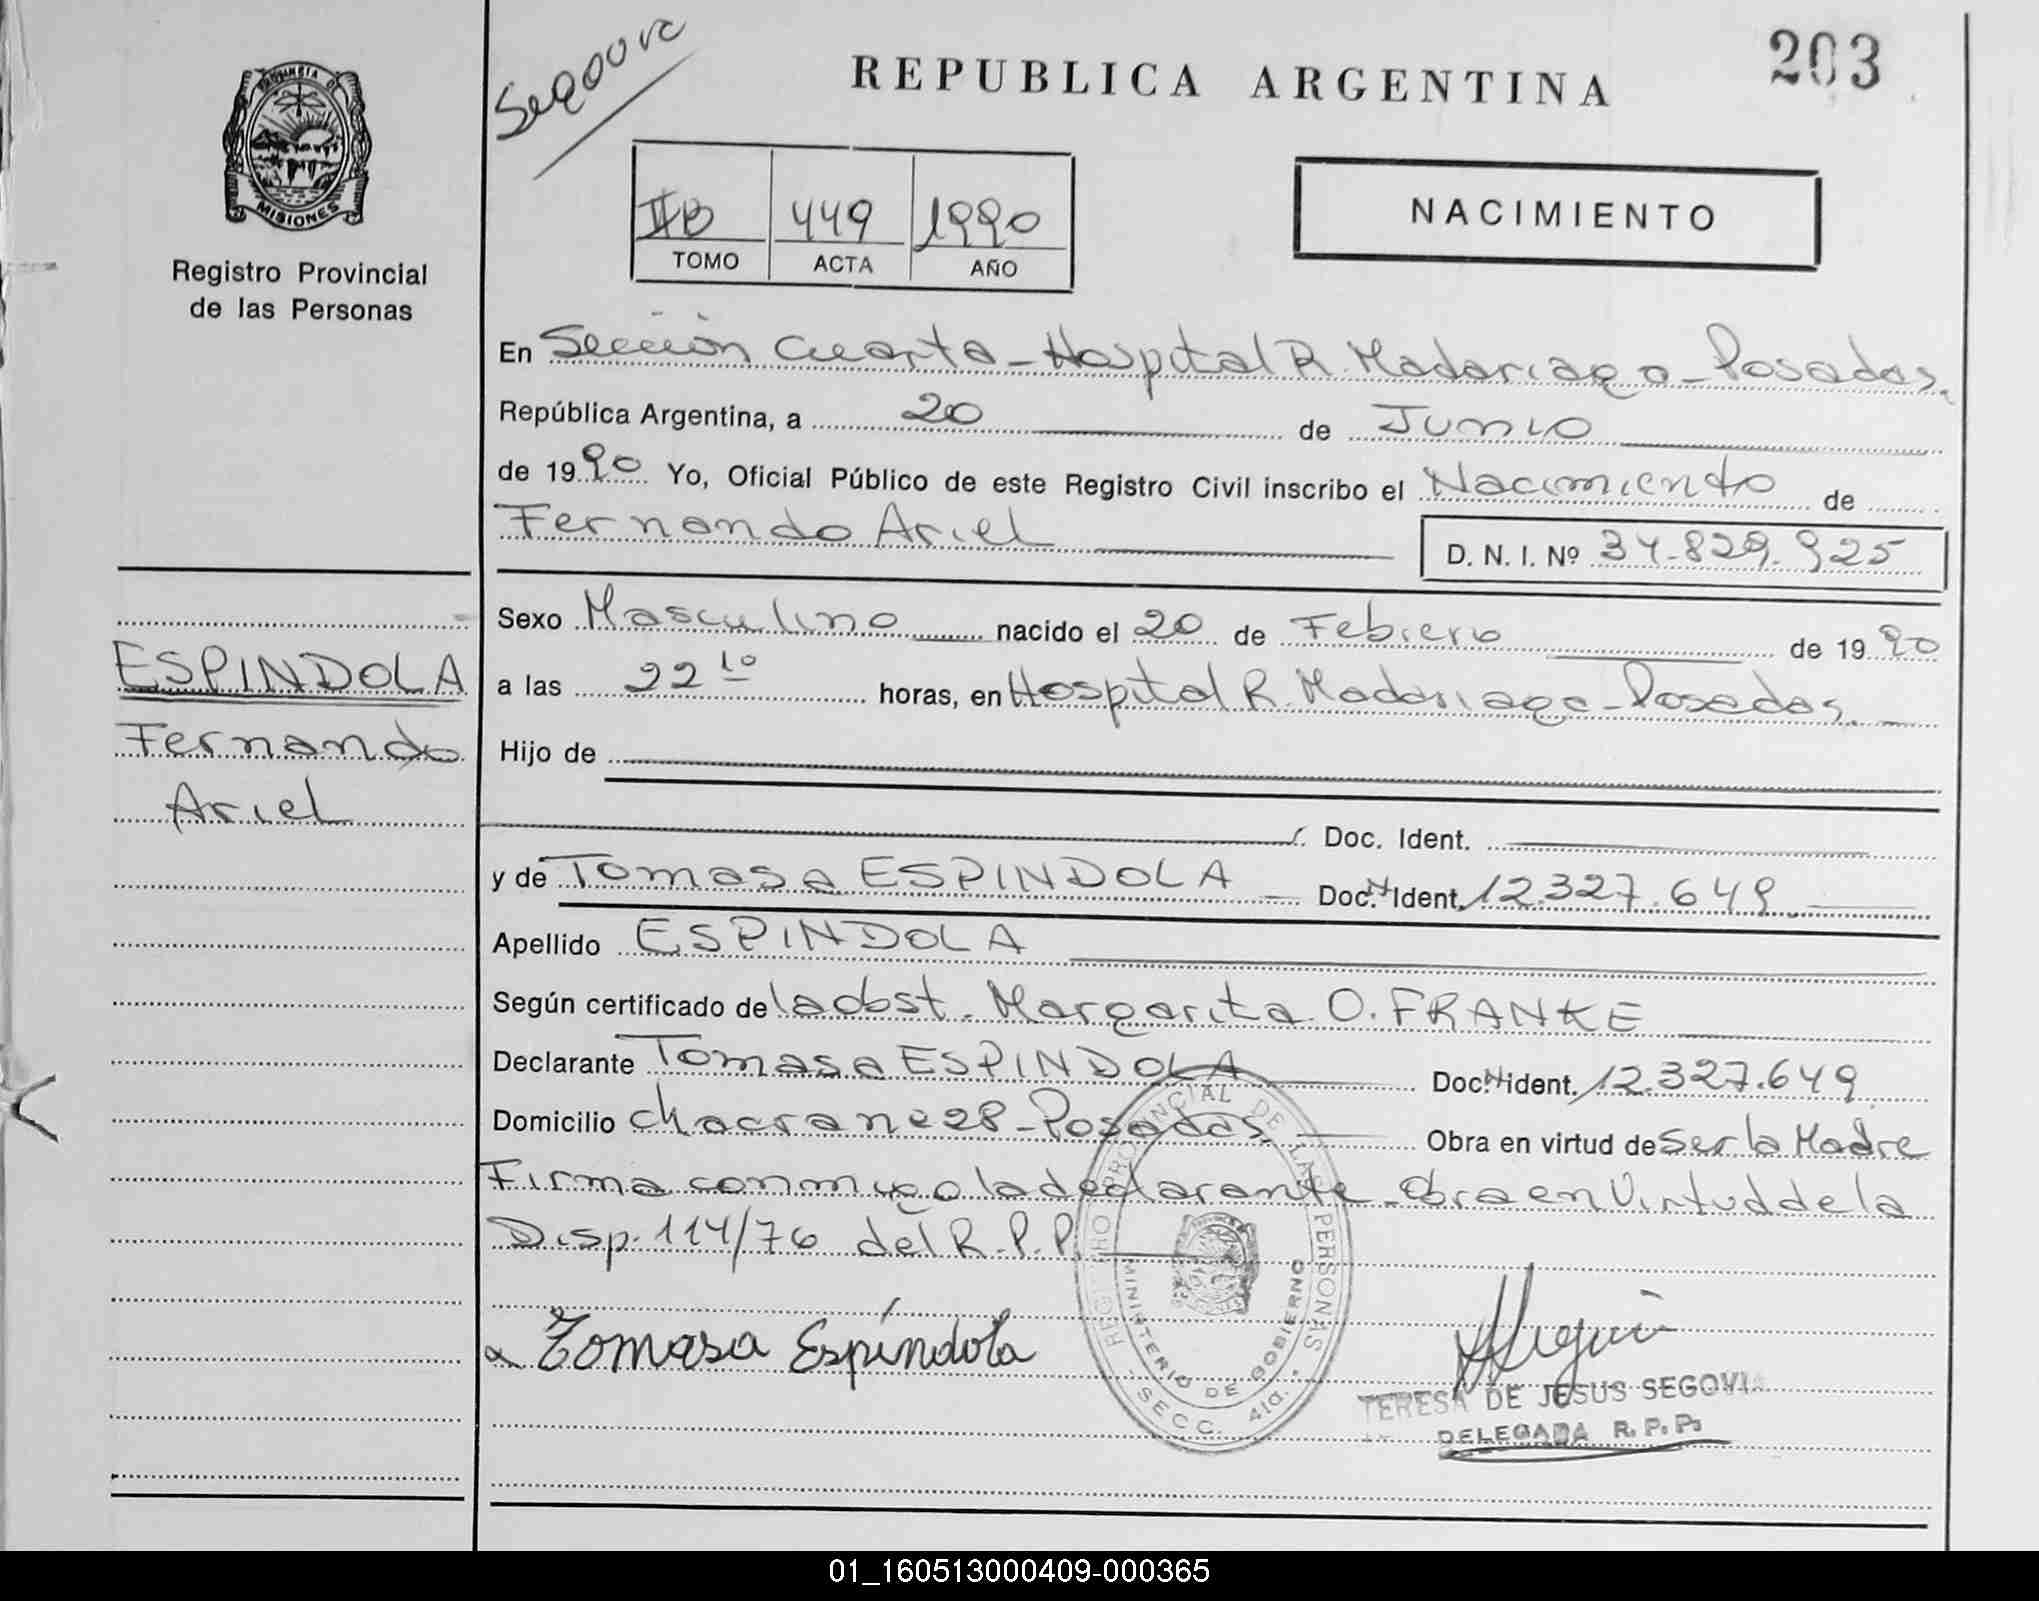 203
Segovia
REPUBLICA ARGENTINA
PROVINCIA DE
MISIONES
Registro Provincial
de las Personas
IIB 449 1990
TOMO ACTA AÑO
NACIMIENTO
En Sección Cuarta - Hospital R. Madariaga - Posadas.
República Argentina, a 20 de Junio
de 1990 Yo, Oficial Público de este Registro Civil inscribo el Nacimiento de
Fernando Ariel D. N. I. Nº 34.829.925
Sexo Masculino nacido el 20 de Febrero de 1990
a las 22 10 horas, en Hospital R. Madariaga - Posadas.
Hijo de
Doc. Ident.
y de Tomasa ESPINDOLA Doc. N Ident. 12.327.649.
Apellido ESPINDOLA
Según certificado de la obst. Margarita O. FRANKE
Declarante Tomasa ESPINDOLA Doc. N ident. 12.327.649
Domicilio chacra nº 28 - Posadas Obra en virtud de Ser la Madre
Firma conmigo la declarante - Obra en Virtud de la
Disp. 114/76 del R.P.P.
ESPINDOLA
Fernando
Ariel
Tomasa Espíndola
REGISTRO PROVINCIAL DE LAS PERSONAS
MINISTERIO DE GOBIERNO
SECC. 4ta.
TERESA DE JESUS SEGOVIA
DELEGADA R.P.P.
01_160513000409-000365